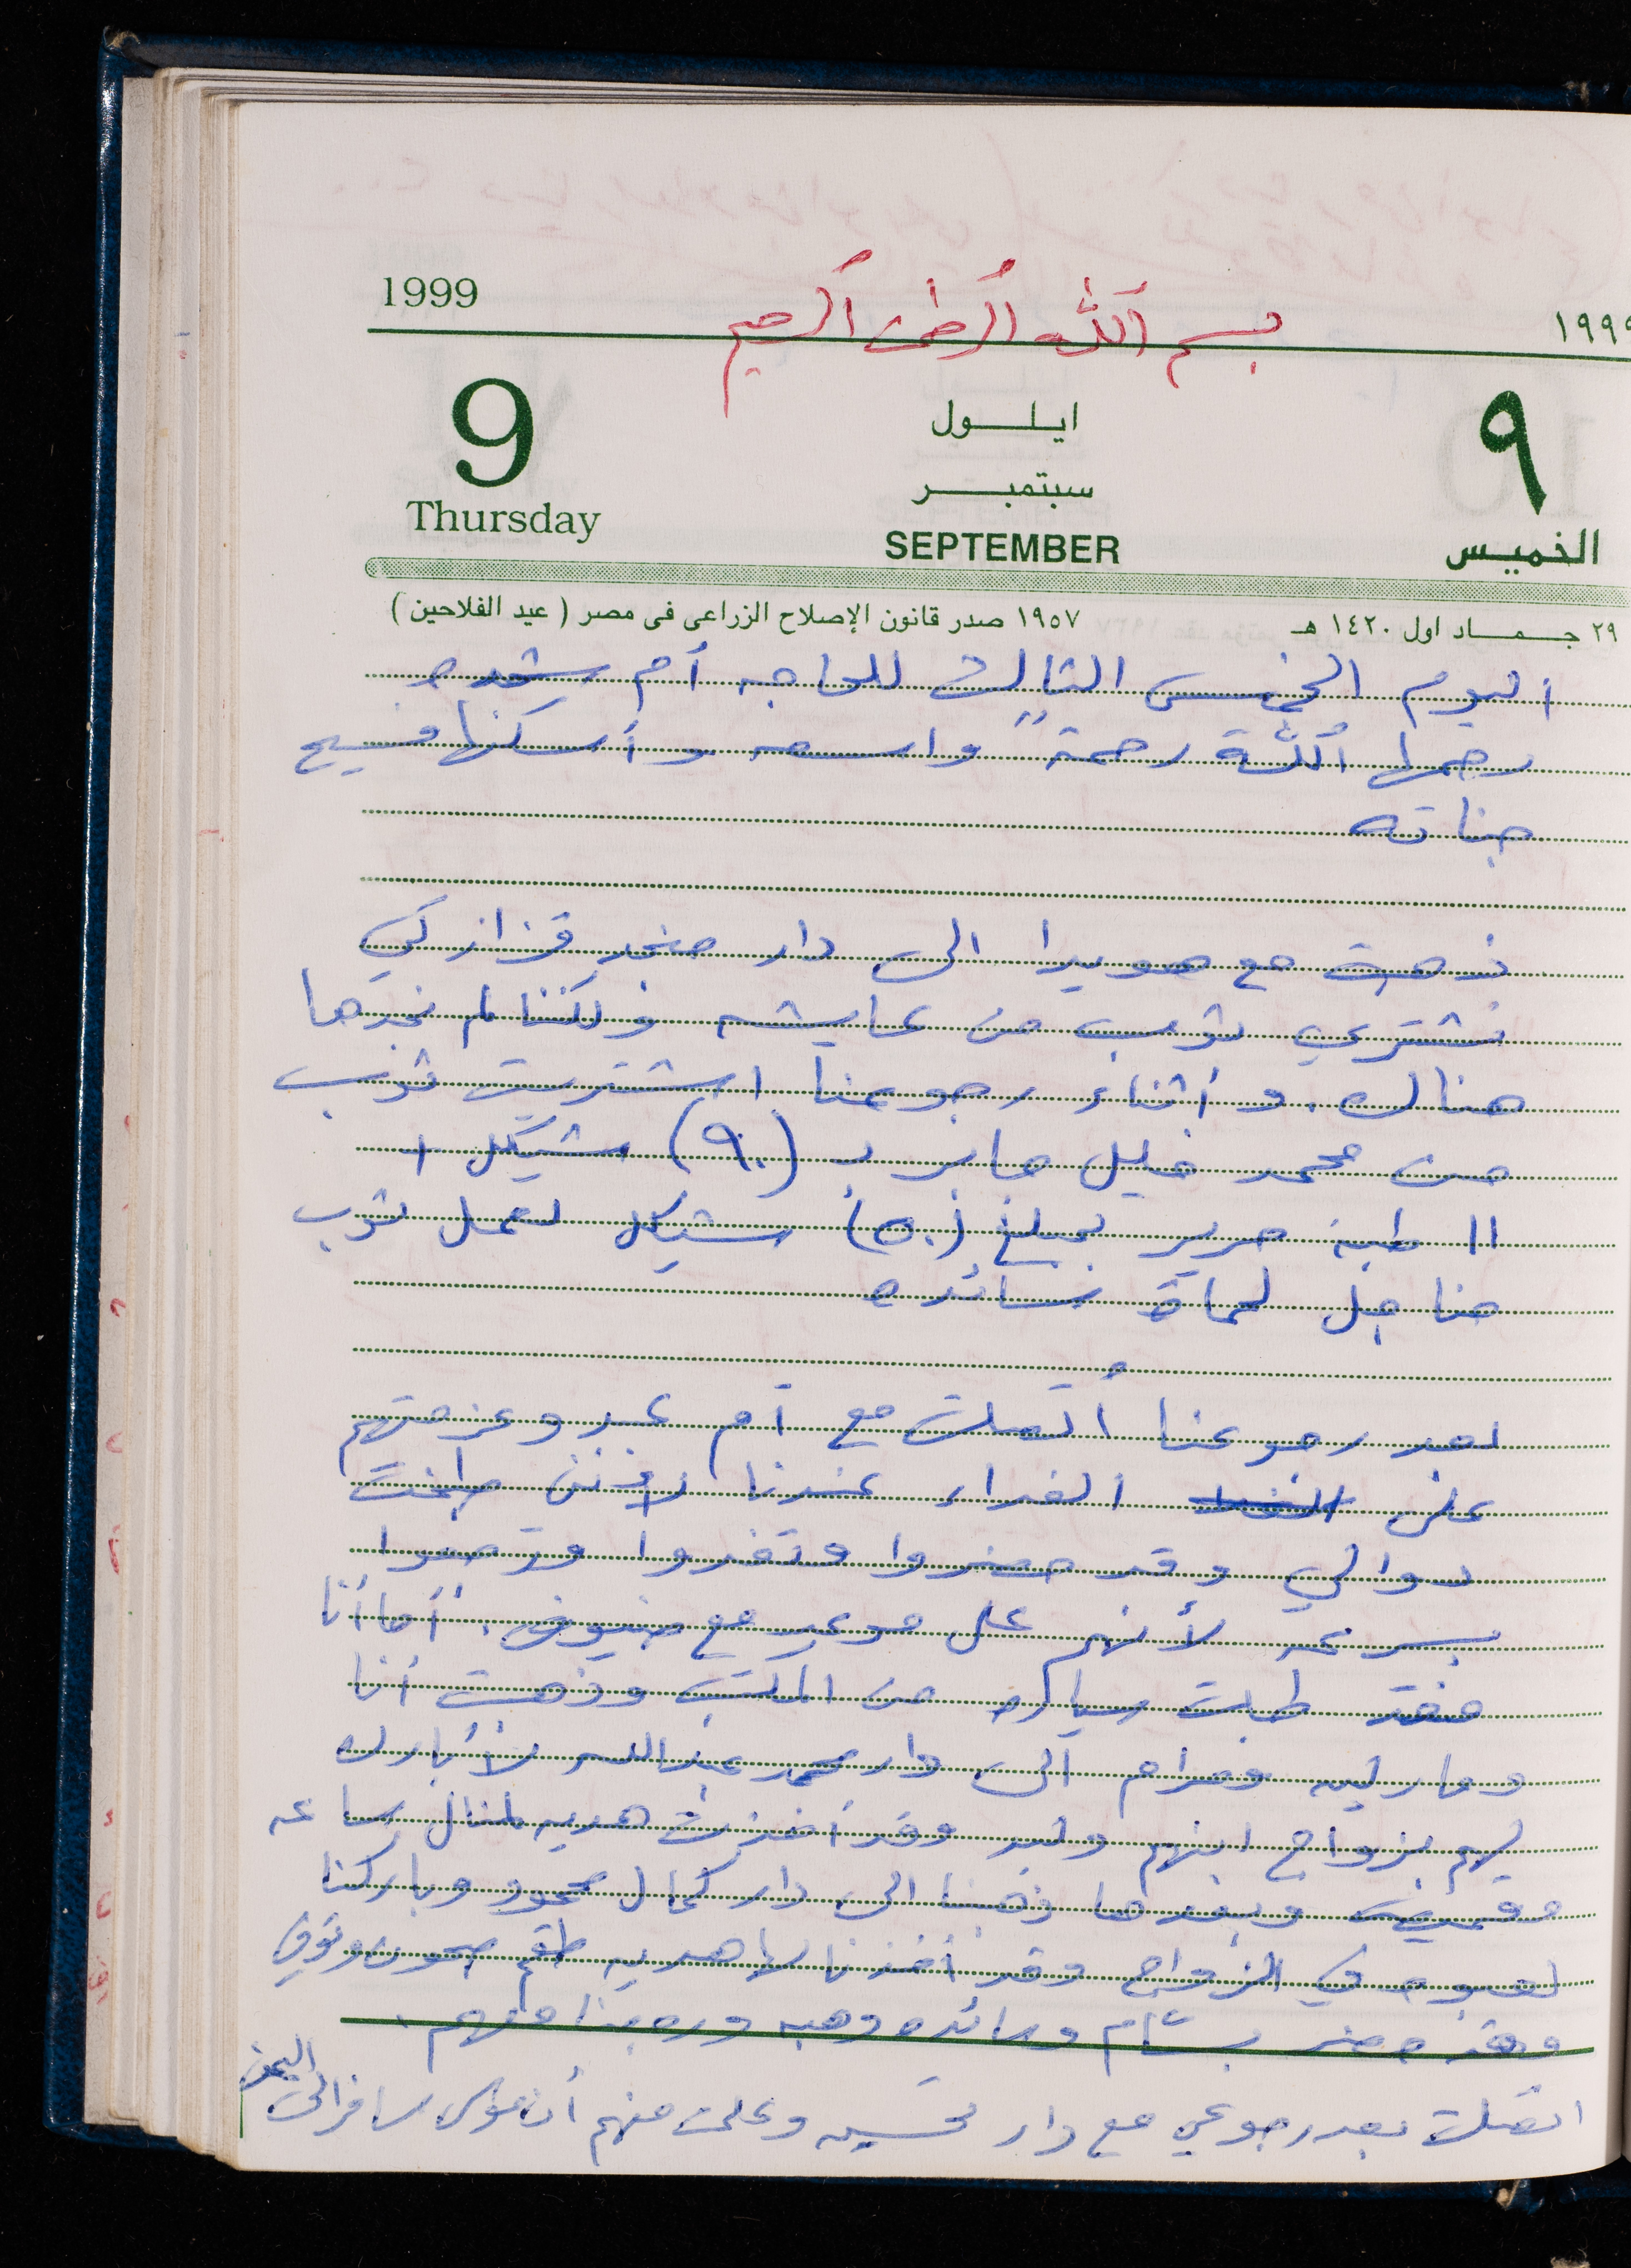 بسم الله الرحمن الرحيم
1999 ١٩٩٩
9 ايلول ٩
سبتمبر
Thursday SEPTEMBER الخميس
٢٩ جماد اول ١٤٢٠ هـ ١٩٥٧ صدر قانون الإصلاح الزراعى فى مصر ( عيد الفلاحين )
اليوم الخميس الثالث للحاجه أم شحده
رحمها الله رحمةً واسعه وأسكنها فسيح
جناته
ذهبت مع هويدا الى دار صخر قزاز لكي
نشتري ثوب من عايشه ولكننا لم نجدها
هناك. وأثناء رجوعنا اشتريت ثوب
من محمد خليل جابر بـ (٩٠) شيكل +
١١ طبة حرير بمبلغ (٥٠) شيكل لعمل ثوب
مناجل لحماة رائده
بعد رجوعنا أتصلت مع أم عبد وعزمتهم
على الغداء عندنا لإنني طبخت
دوالي وقد حضروا وتغدوا وروحوا
بسرعه لأنهم على موعد مع ضيوف. أما أنا
فقد طلبت سياره من المكتب وذهبت أنا
ومارلين ومرام الى دار محمد عبدالله لأبارك
لهم بزواج ابنهم وليد وقد أخذت هديه لمنال ساعه
وقميص وبعدها ذهبنا الى دار كمال محمود وباركنا
في الزواج وقد أخذنا لها هديه طقم صحون
وقد حضر بسام ورائده وهبه وروبينا معهم.
اتصلت بعد رجوعي مع دار تحسين وعلمت منهم أن مؤنس سافر الى اليمن